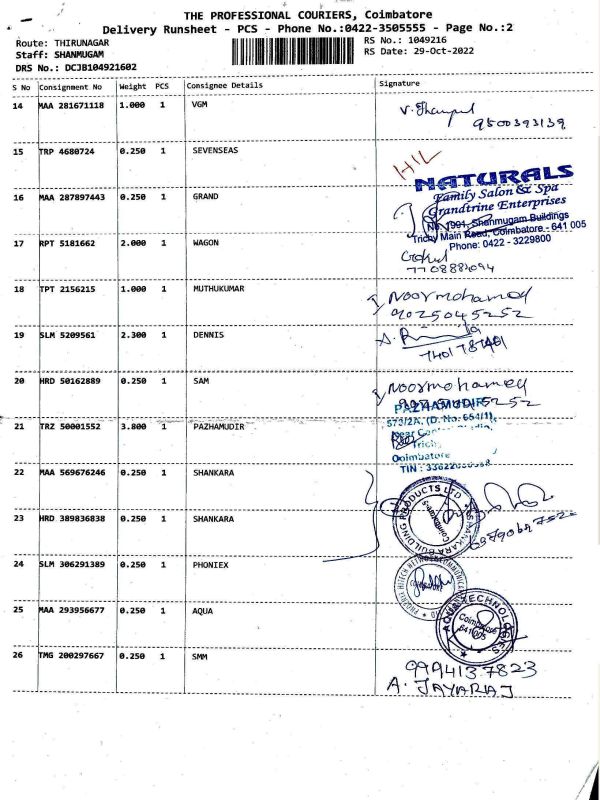 THE PROFESSIONAL COURIERS, Coimbatore
Delivery Runsheet - PCS - Phone No.:0422-3505555 - Page No.:2
Route: THIRUNAGAR
Staff: SHANMUGAM
DRS No.: DCJB104921602
RS No.: 1049216
RS Date: 29-Oct-2022
S No Consignment No Weight PCS Consignee Details Signature
14 MAA 281671118 1.000 1 VGM
9500393139
15 TRP 4680724 0.250 1 SEVENSEAS
HIL
NATURALS
Family Salon & Spa
Grandtrine Enterprises
16 MAA 287897443 0.250 1 GRAND
Shanmugam Buildings
Trichy Main Road, Coimbatore - 641 005
Phone: 0422 - 3229800
17 RPT 5181662 2.000 1 WAGON
7708883094
18 TPT 2156215 1.000 1 MUTHUKUMAR
Noormohamed
9025045252
19 SLM 5209561 2.300 1 DENNIS
20 HRD 50162889 0.250 1 SAM
Noormohamed
21 TRZ 50001552 3.800 1 PAZHAMUDIR
PAZHAMUDIR
573/2A, (D. No. 654/1),
Near
Trich
Coimbatore
TIN :
22 MAA 569676246 0.250 1 SHANKARA
23 HRD 389836838 0.250 1 SHANKARA
SHANKARA BUILDING PRODUCTS LTD
24 SLM 306291389 0.250 1 PHONIEX
25 MAA 293956677 0.250 1 AQUA
AQUA TECHNOLOGIES
Coimbatore
641 005
26 TMG 200297667 0.250 1 SMM
9994137823
A. JAYARAJ